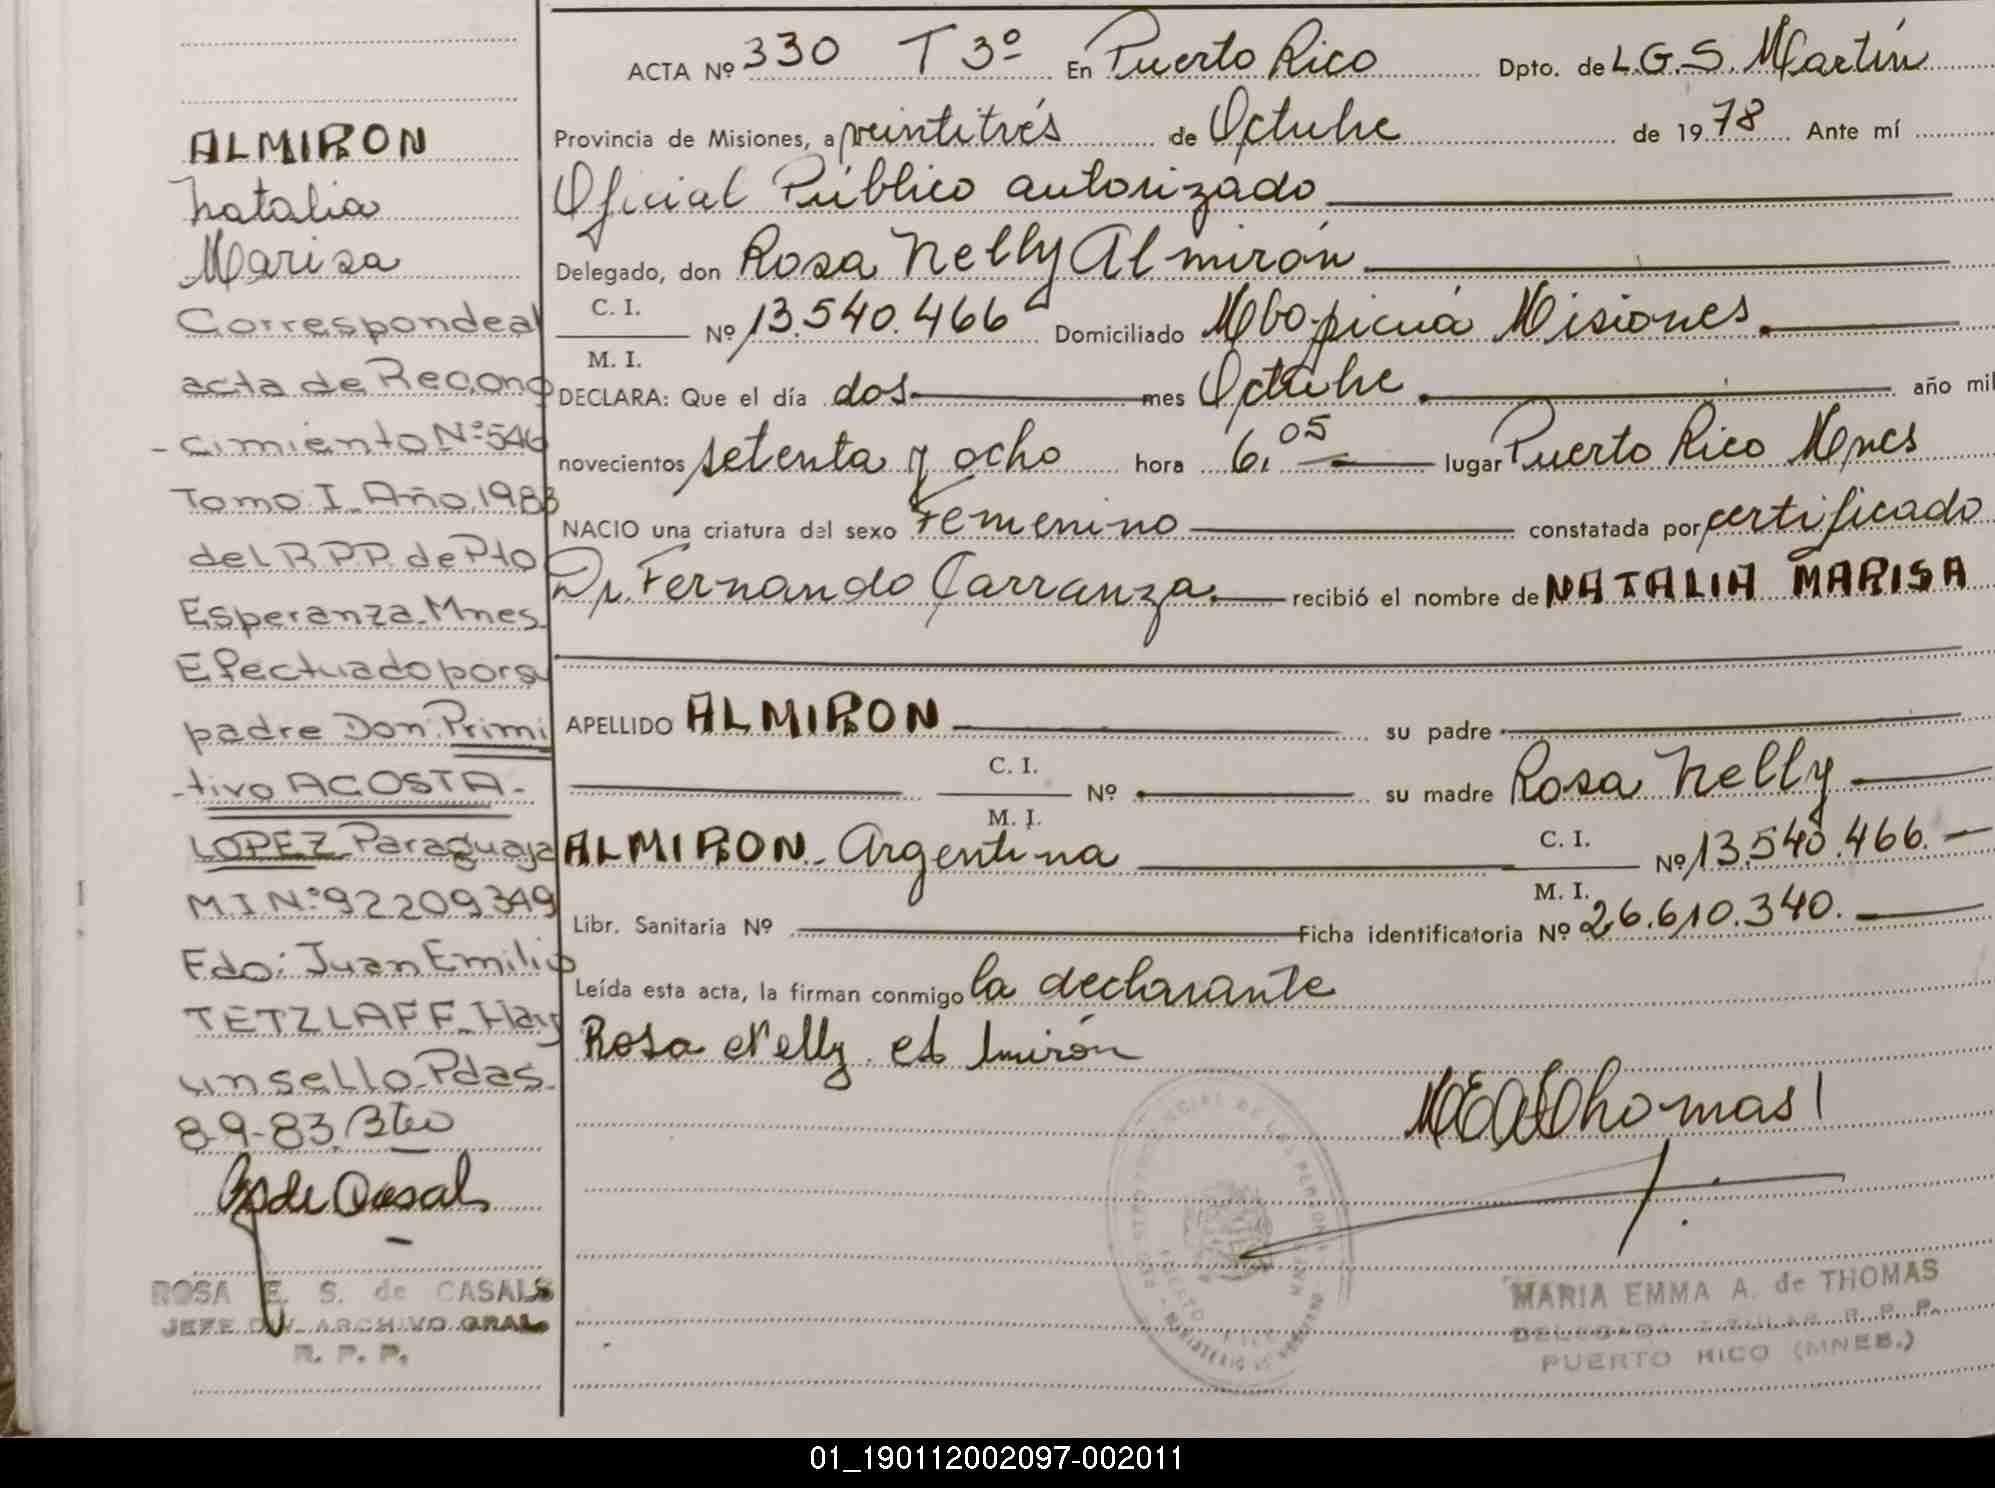 ALMIRON
Natalia
Marisa
Corresponde al
acta de Recono
-cimiento Nº 546
Tomo I Año 1983
del R.P.P. de Pto
Esperanza Mnes
Efectuado por su
padre Don Primi
-tivo ACOSTA-
LOPEZ Paraguaya
M I Nº 92209349
Fdo: Juan Emilio
TETZLAFF. Hay
un sello. Pdas.
8-9-83.
ROSA E. S. de CASALS
JEFE DIV. ARCHIVO GRAL.
R. P. P.
ACTA Nº 330 T 3º En Puerto Rico Dpto. de L.G.S. Martín
Provincia de Misiones, a veintitrés de Octubre de 1978 Ante mí
Oficial Público autorizado
Delegado, don Rosa Nelly Almirón
C. I.
M. I. Nº 13.540.466 Domiciliado Mbopicuá Misiones
DECLARA: Que el día dos mes Octubre año mil
novecientos setenta y ocho hora 6.05 lugar Puerto Rico Mnes
NACIO una criatura del sexo Femenino constatada por certificado
Dr. Fernando Carranza recibió el nombre de NATALIA MARISA
APELLIDO ALMIRON su padre
C. I.
M. I. Nº su madre Rosa Nelly
ALMIRON - Argentina C. I.
M. I. Nº 13.540.466.
Libr. Sanitaria Nº Ficha identificatoria Nº 26.610.340.
Leída esta acta, la firman conmigo la declarante
Rosa Nelly Almirón
Thomas
MARIA EMMA A. de THOMAS
DELEGADA TITULAR R. P. P.
PUERTO RICO (MNES.)
01_190112002097-002011